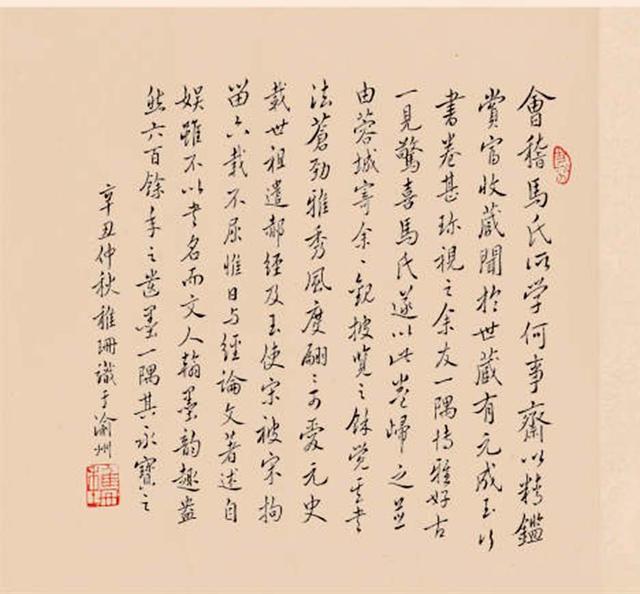 會稽馬氏以学何事齋以精鑑
賞富收藏聞於世藏有元成玉行
書卷甚珍視之余友一隅博雅好古
一見驚喜馬氏遂以此卷歸之並
由蓉城寄余〻観披覽之餘覺其書
法蒼勁雅秀風度翩〻可愛元史
載世祖遣郝經及玉使宋被宋拘
留六載不屈惟日与經論文著述自
娱雖不以書名而文人翰墨韵趣盎
然六百餘年之舊墨一隅其永寶之
辛丑仲秋稚珊識于渝州